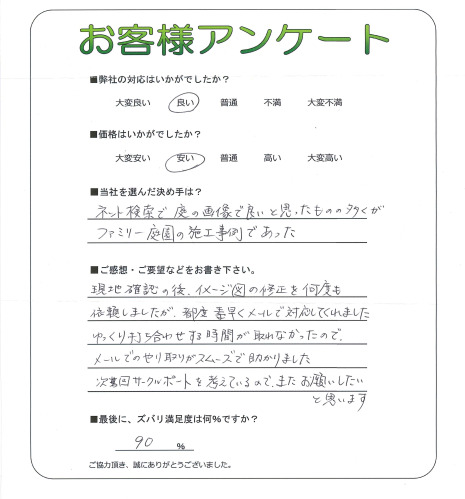 お客様アンケート
■弊社の対応はいかがでしたか？
大変良い 良い 普通 不満 大変不満
■価格はいかがでしたか？
大変安い 安い 普通 高い 大変高い
■当社を選んだ決め手は？
ネット検索で庭の画像で良いと思ったものの多くが
ファミリー庭園の施工事例であった
■ご感想・ご要望などをお書き下さい。
現地確認の後、イメージ図の修正を何度も
依頼しましたが、都度素早くメールで対応してくれました
ゆっくり打ち合わせする時間が取れなかったので、
メールでのやり取りがスムーズで助かりました
次回サークルポートを考えているので、またお願いしたい
と思います
■最後に、ズバリ満足度は何％ですか？
90 ％
ご協力頂き、誠にありがとうございました。